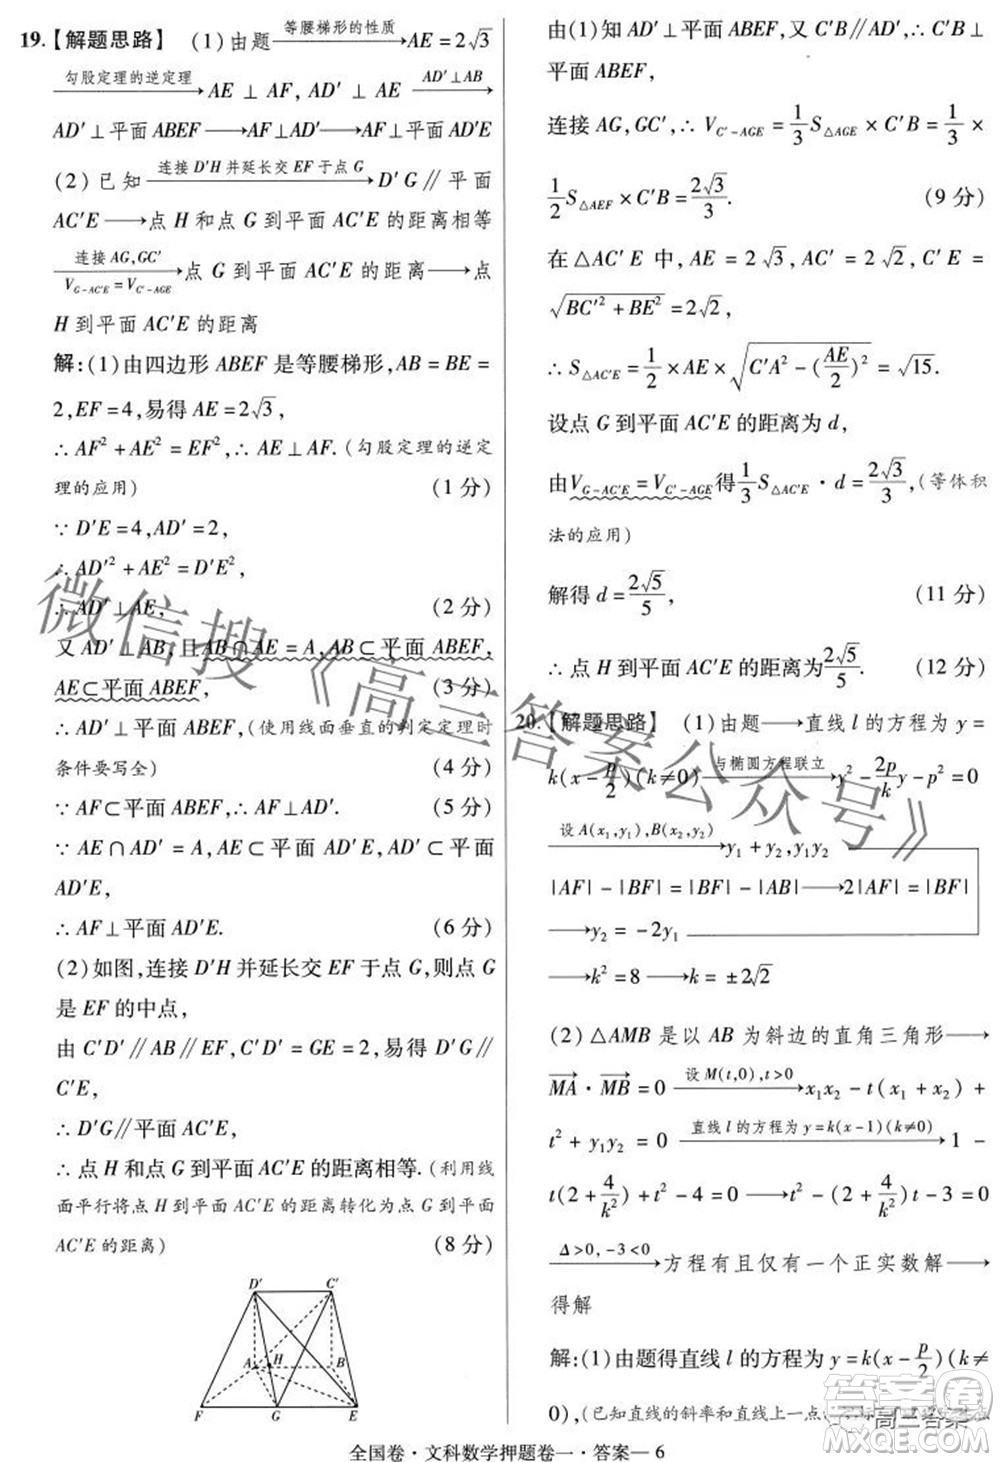 19.【解题思路】 (1)由题 —等腰梯形的性质→ AE=2√3
—勾股定理的逆定理→ AE⊥AF, AD′⊥AE —AD′⊥AB→
AD′⊥平面ABEF→AF⊥AD′→AF⊥平面AD′E
(2)已知 —连接D′H并延长交EF于点G→ D′G∥平面
AC′E→点H和点G到平面AC′E的距离相等
—连接AG,GC′ / V_{G-AC′E}=V_{C′-AGE}→ 点G到平面AC′E的距离→点
H到平面AC′E的距离
解:(1)由四边形ABEF是等腰梯形,AB=BE=
2,EF=4,易得AE=2√3,
∴AF²+AE²=EF²,∴AE⊥AF.(勾股定理的逆定
理的应用) (1分)
∵D′E=4,AD′=2,
∴AD′²+AE²=D′E²,
∴AD′⊥AE, (2分)
又AD′⊥AB,且AB∩AE=A,AB⊂平面ABEF,
AE⊂平面ABEF, (3分)
∴AD′⊥平面ABEF,(使用线面垂直的判定定理时
条件要写全) (4分)
∵AF⊂平面ABEF,∴AF⊥AD′. (5分)
∵AE∩AD′=A,AE⊂平面AD′E,AD′⊂平面
AD′E,
∴AF⊥平面AD′E. (6分)
(2)如图,连接D′H并延长交EF于点G,则点G
是EF的中点,
由C′D′∥AB∥EF,C′D′=GE=2,易得D′G∥
C′E,
∴D′G∥平面AC′E,
∴点H和点G到平面AC′E的距离相等.(利用线
面平行将点H到平面AC′E的距离转化为点G到平面
AC′E的距离) (8分)
D′ C′
A H B
F G E
由(1)知AD′⊥平面ABEF,又C′B∥AD′,∴C′B⊥
平面ABEF,
连接AG,GC′,∴V_{C′-AGE}=1/3 S_{△AGE}×C′B=1/3×
1/2 S_{△AEF}×C′B=2√3/3. (9分)
在△AC′E中,AE=2√3,AC′=2√2,C′E=
√(BC′²+BE²)=2√2,
∴S_{△AC′E}=1/2×AE×√(C′A²-(AE/2)²)=√15.
设点G到平面AC′E的距离为d,
由V_{G-AC′E}=V_{C′-AGE}得1/3 S_{△AC′E}·d=2√3/3,(等体积
法的应用)
解得d=2√5/5, (11分)
∴点H到平面AC′E的距离为2√5/5. (12分)
20.【解题思路】 (1)由题→直线l的方程为y=
k(x-p/2)(k≠0) —与椭圆方程联立→ y²-2p/k y-p²=0
—设A(x₁,y₁),B(x₂,y₂)→ y₁+y₂,y₁y₂
|AF|-|BF|=|BF|-|AB|→2|AF|=|BF|
→y₂=-2y₁
→k²=8→k=±2√2
(2)△AMB是以AB为斜边的直角三角形→
MA·MB=0 —设M(t,0),t>0→ x₁x₂-t(x₁+x₂)+
t²+y₁y₂=0 —直线l的方程为y=k(x-1)(k≠0)→ 1-
t(2+4/k²)+t²-4=0→t²-(2+4/k²)t-3=0
—Δ>0,-3<0→ 方程有且仅有一个正实数解→
得解
解:(1)由题得直线l的方程为y=k(x-p/2)(k≠
0),(已知直线的斜率和直线上一点
全国卷·文科数学押题卷一·答案—6
微信搜《高三答案公众号》
答案圈
高三答案